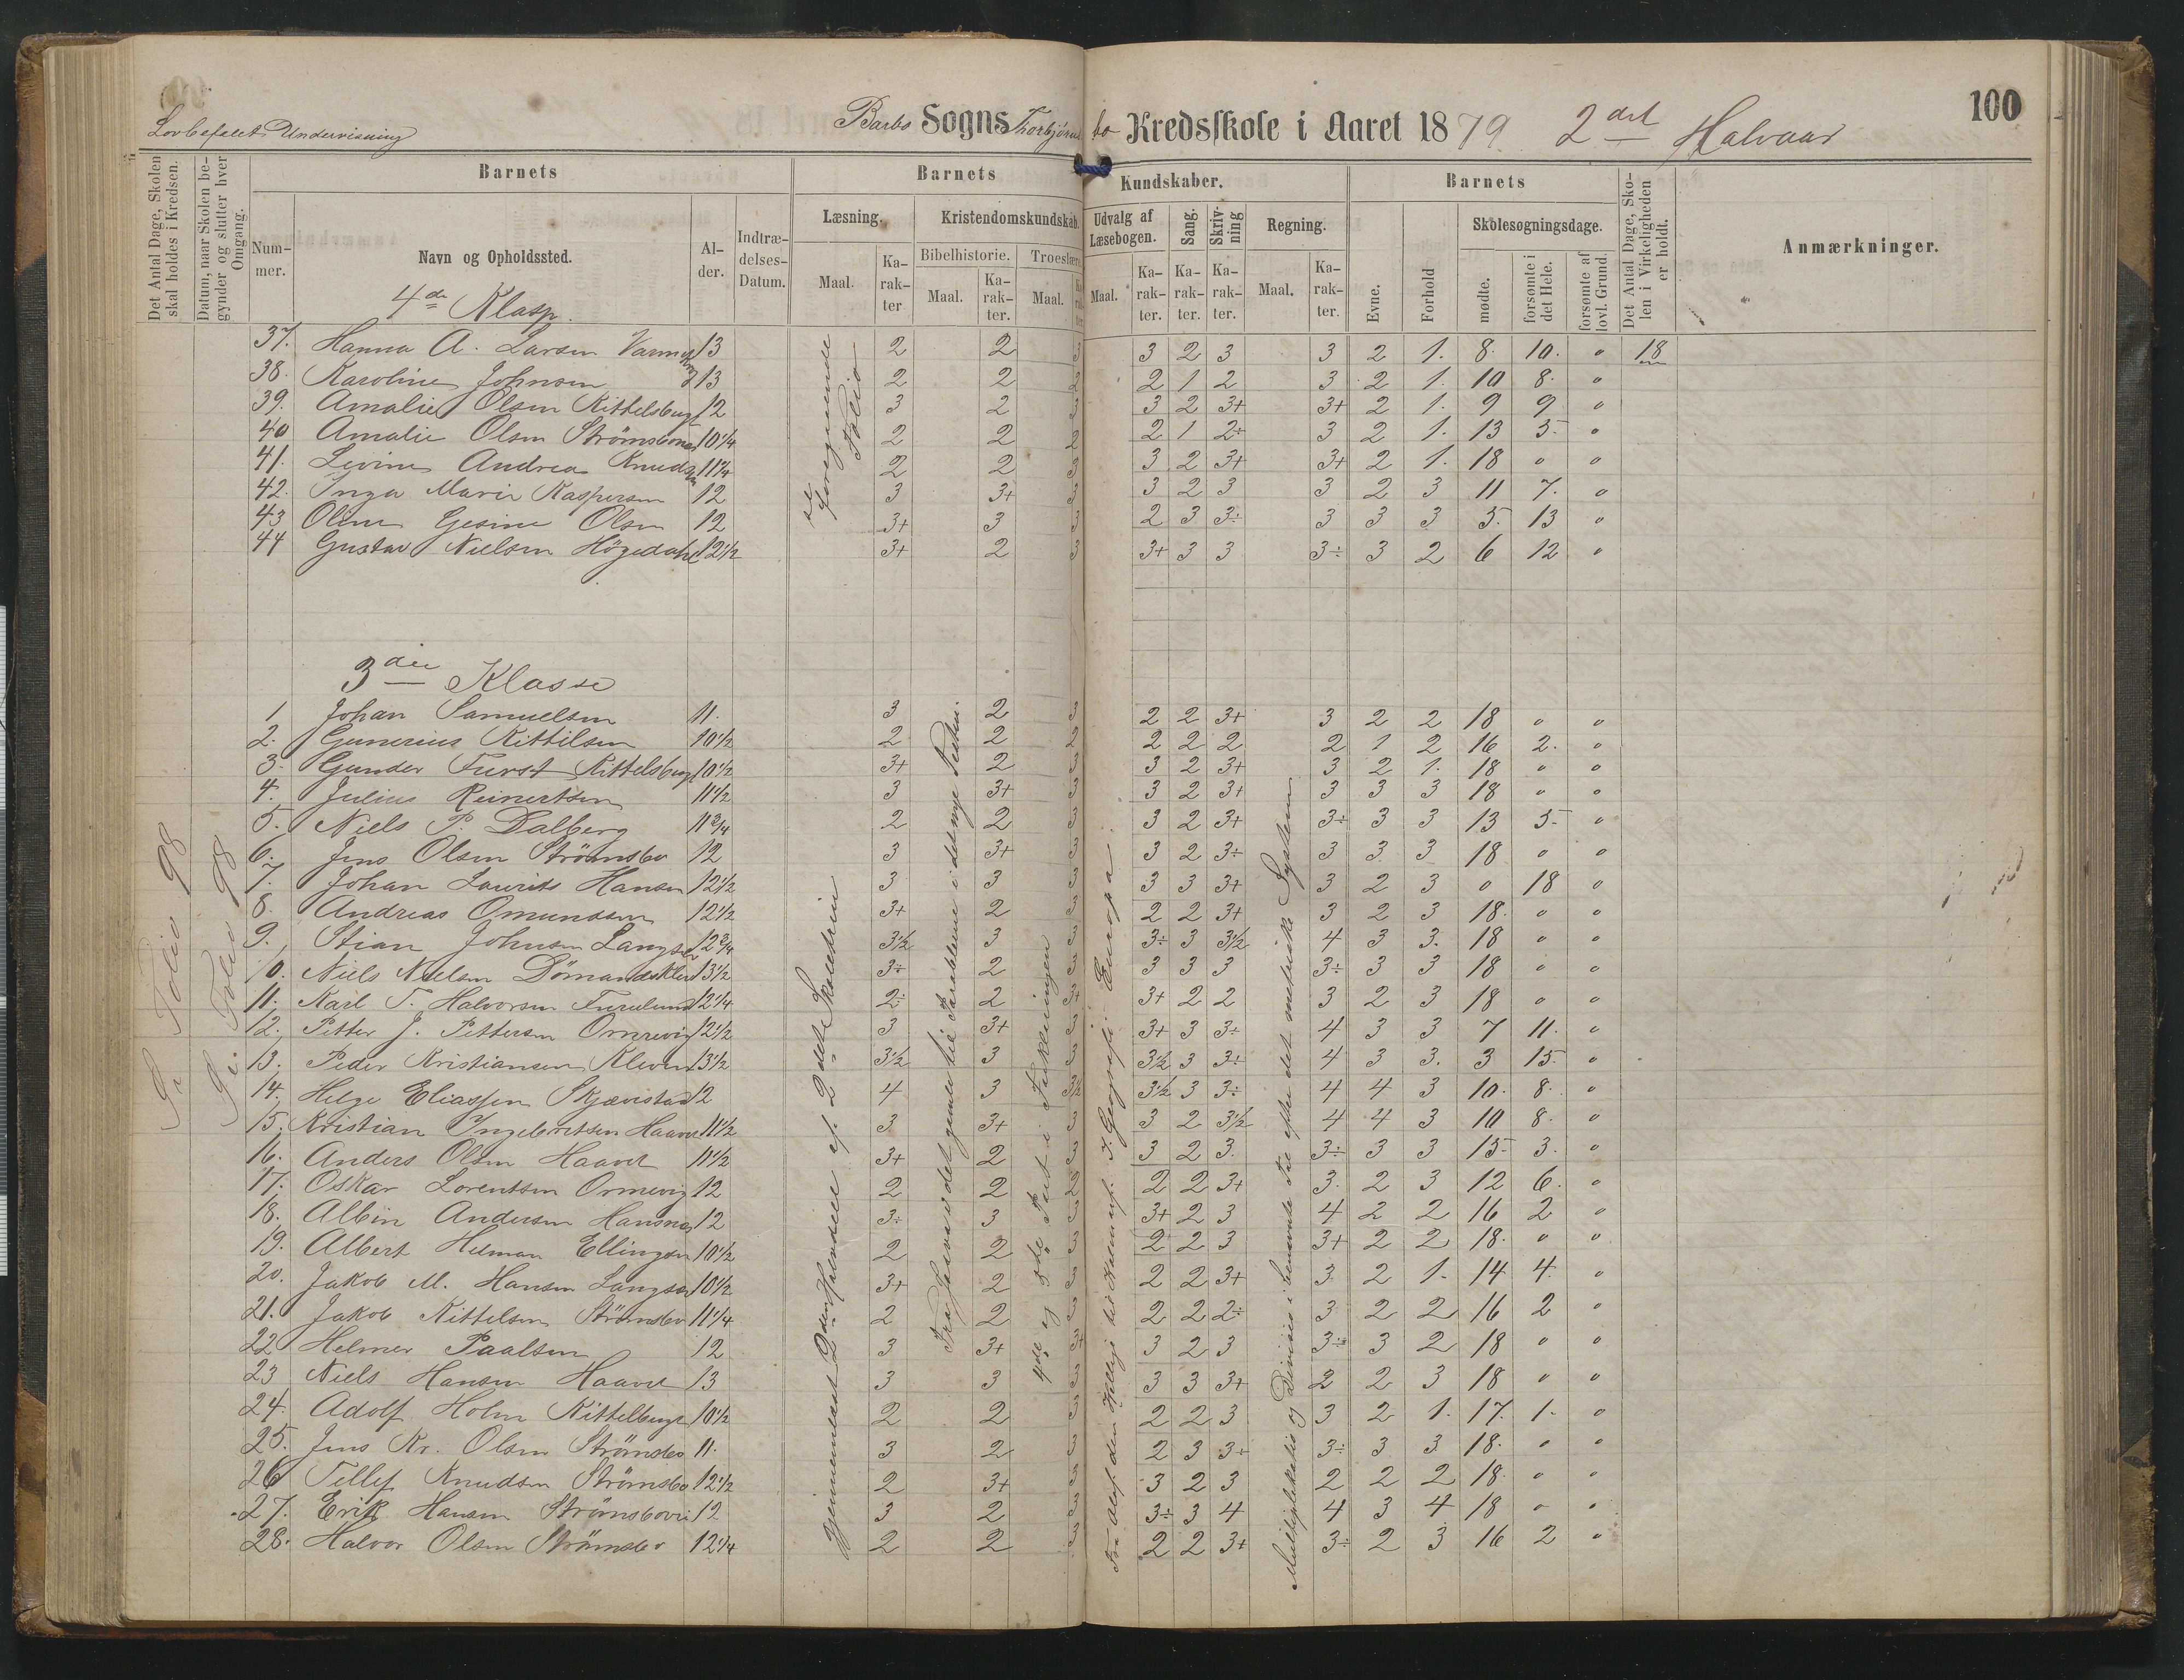 100
Lovbefalet Undervisning
Barbo Sogns Thorbjørnsbo Kredsskole i Aaret 1879. 2det Halvaar
Det Antal Dage, Skolen skal holdes i Kredsen.
Datum, naar Skolen begynder og slutter hver Omgang.
Barnets
Nummer.
Navn og Opholdssted.
Alder.
Indtrædelses-Datum.
Barnets Kundskaber.
Læsning. Maal. Karakter
Kristendomskundskab.
Bibelhistorie. Maal. Karakter.
Troeslære. Maal.
Udvalg af Læsebogen. Maal. Karakter.
Sang. Karakter.
Skrivning Karakter.
Regning. Maal. Karakter.
Barnets
Evne.
Forhold
Skolesøgningsdage.
mødte.
forsømte i det Hele.
forsømte af lovl. Grund.
Det Antal Dage, Skolen i Virkeligheden er holdt.
Anmærkninger.
4de Klasse.
37. Hanna A. Larsen 13 2 2 3 3 2 3 3 2 1. 8. 10. 0 18
38. Karoline Johnsen 13 2 2 2 2 1 2 3 2 1. 10 8. 0
39. Amalie Olsen Kittelsbugt 12 3 2 3 3 2 3+ 3+ 2 1. 9 9 0
40 Amalie Olsen 10 1/4 2 2 2 2 1 2÷ 3 2 1. 13 5- 0
41. Levine Andrea Knudsen 11 3/4 2 2 3 3 2 3+ 3+ 2 1. 18 0 0
42. Inga Marie Kaspersen 12 3 3+ 3 3 2 3 3 2 3 11 7. 0
43 Oline Gesine Olsen 12 3+ 3 3 2 3 3÷ 3 3 3 5. 13 0
44 Gustav Nielsen Högedahl 12 1/2 3+ 2 3 3+ 3 3 3÷ 3 2 6 12 0
se foregaaende Folio
3die Klasse
1 Johan Samuelsen 11. 3 2 3 2 2 3+ 3 2 2 18 0 0
2. Gunerius Kittilsen 10 1/2 2 2 2 2 2 2 2 1 2 16 2. 0
3. Gunder Furst Kittelsbugt 10 1/2 3+ 2 3 3 2 3+ 3 2 1. 18 0 0
4. Julius Reinertsen 11 1/2 3 3+ 3 3 2 3+ 3 3 3 18 0 0
5. Niels P. Dalberg 11 3/4 2 2 3 3 2 3+ 3÷ 3 3 13 5- 0
6. Jens Olsen Strömsbo 12 3 3+ 3 3 2 3÷ 3 3 3 18 0 0
7. Johan Laurits Hansen 12 1/2 3 3 3 3 3 3+ 3 2 3 0 18 0
8. Andreas Omundsen 12 1/2 3+ 2 3 2 2 3+ 3 2 3 18. 0 0
9. Stian Johnsen Langsæ 12 3/4 3 1/2 3 3 3÷ 3 3 1/2 4 3 3. 18 0 0
10. Niels Nielsen 13 1/2 3÷ 2 3 3 3 3 3÷ 3 3 18 0 0
11. Karl T. Halvorsen Furulund 12 1/4 2÷ 2 3+ 3+ 2 2 3 2 3 18 0 0
12. Petter J. Pettersen Omrevig 12 1/2 3 3+ 3 3+ 3 3÷ 4 3 3 7 11. 0
13. Peder Kristiansen Kleven 13 1/2 3 1/2 3 3 3 1/2 3 3÷ 4 3 3. 3 15. 0
14. Helge Eliassen Skjævestad 12 4 3 3 1/2 3 1/2 3 3÷ 4 4 3 10. 8. 0
15. Kristian Ingebretsen Haavet 11 1/2 3 3+ 3 3 2 3 1/2 4 4 3 10 8. 0
16. Anders Olsen Haavet 11 1/2 3+ 2 3 3 2 3. 3÷ 3 3 15- 3. 0
17. Oskar Lorentsen Omrevig 12 2 2 2 2 2 3+ 3. 2 3 12 6. 0
18. Albin Andersen Hansnæs 12 3÷ 3 3 3+ 2 3 4 2 2 16 2 0
19. Albert Hilman Ellingsen 10 1/2 2 2 3 2 2 3 3+ 2 2 18. 0 0
20. Jakob M. Hansen Langsæ 10 1/2 3+ 2 3 2 2 3+ 3. 2 1. 14 4. 0
21. Jakob Kittelsen Strömsbo 11 1/4 2 2 3 2 2 2÷ 3 2 2 16 2 0
22 Helmer Paalsen 12 3 3+ 3+ 3 2 3 3÷ 3 2 18 0 0
23 Niels Hansen Haavet 13 3 3 3 3 3 3+ 2 2 3 18 0 0
24. Adolf Holm Kittelbugt 10 1/2 2 2 3 2 2 3 3 2 1. 17. 1. 0
25. Jens Kr. Olsen Strömsbo 11. 3 2 3 2 3 3÷ 3÷ 3 3 18. 0 0
26 Tellef Knudsen Strömsbo 12 1/2 2 3+ 3 3 2 3 2 2 2 18. 0 0
27. Erik Hansen Strömsbovei 12 3 2 3 3÷ 3 4 4 3 4 18 0 0
28. Halvor Olsen Strömsbo 12 1/4 2 2 3 2 2 3+ 3÷ 2 3 16 2 0
Se Folio 98
Se Folio 98
Gjennemlæst 2den Halvdeel af 2det Skoletrin
Fra Jesu det gamle til Parablerne i det nye Testm.
4de og 5te Part i Forklaringen
Fra Olaf den Hellige til Kalmaruf. I Geografi: Europa.
Multiplikation og Division i benævnte Tal efter det metriske System